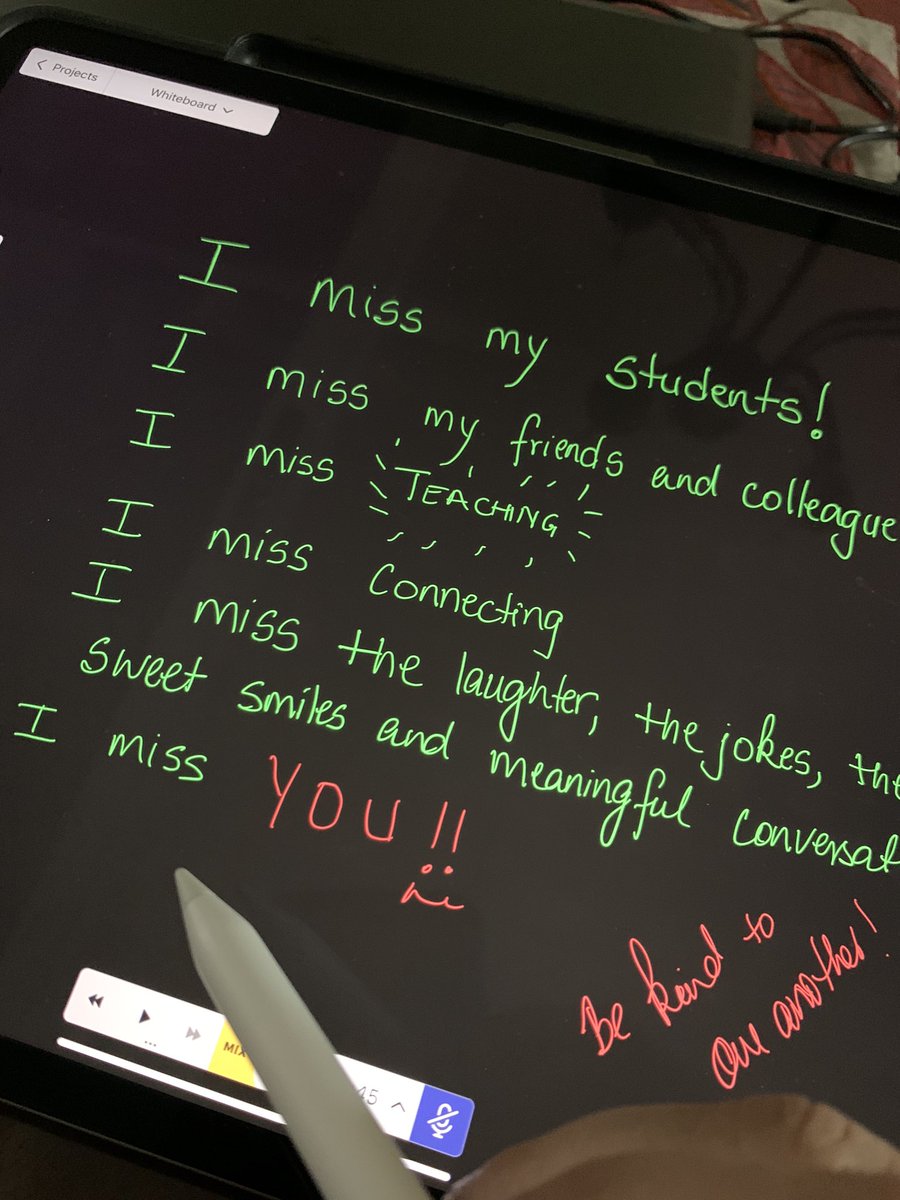 Projects
Whiteboard
I miss my students!
I miss my friends and colleague
I miss TEACHING
I miss Connecting
I miss the laughter, the jokes, the
sweet smiles and meaningful conversat
I miss YOU!!
Be kind to
one another!
MIX
45